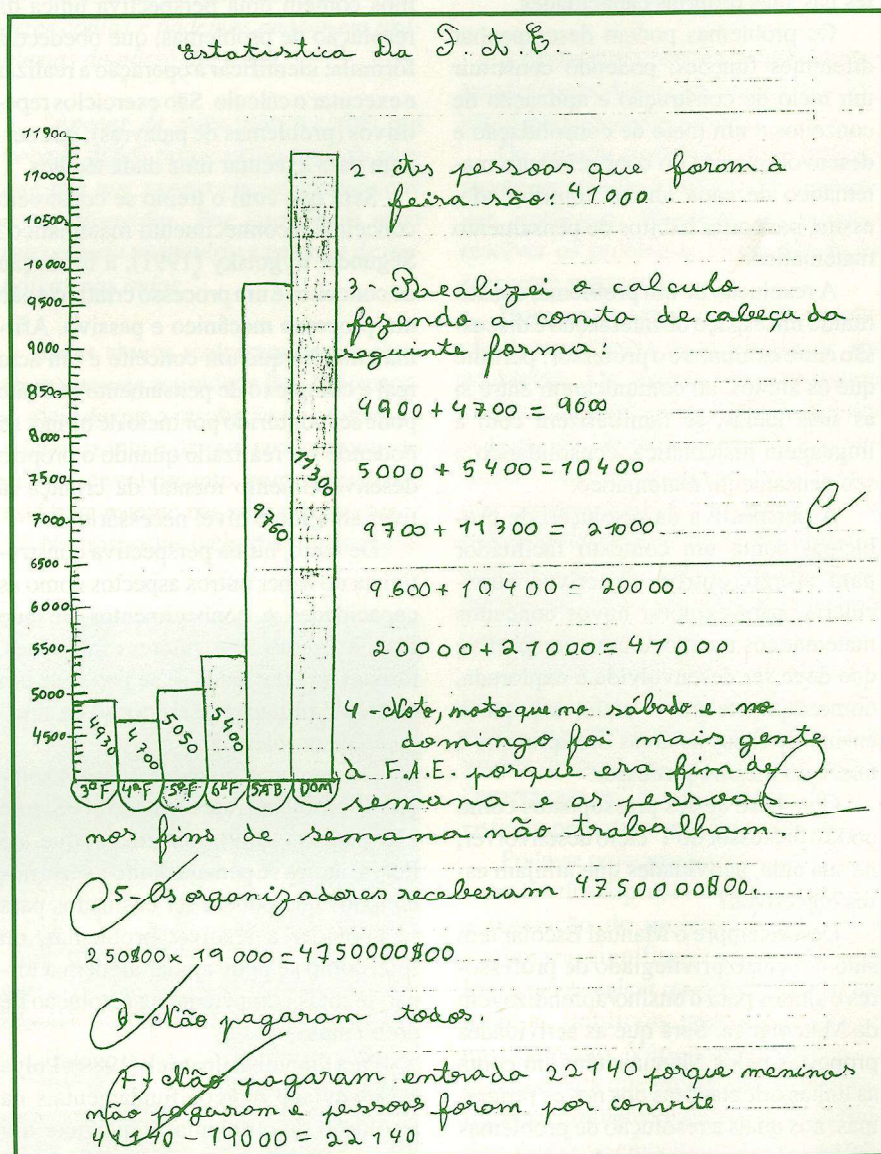 Estatística Da F. A. E.
11900
11000
10500
10000
9500
9000
8500
8000
7500
7000
6500
6000
5500
5000
4500
4930
4700
5050
5400
9760
11300
3ªF 4ªF 5ªF 6ªF SAB DOM
2 - As pessoas que foram à
feira são: 41000.
3 - Realizei o calculo
fezendo a conta de cabeça da
seguinte forma:
4900 + 4700 = 9600
5000 + 5400 = 10400
9700 + 11300 = 21000
9600 + 10400 = 20000
20000 + 21000 = 41000
4 - Noto, noto que no sábado e no
domingo foi mais gente
à F.A.E. porque era fim de
semana e as pessoas
nos fins de semana não trabalham.
5 - Os organizadores receberam 4750000$00.
250$00 x 19000 = 4750000$00
6 - Não pagaram todos.
7 - Não pagaram entrada 22140 porque meninas
não pagaram e pessoas foram por convite
41140 - 19000 = 22140